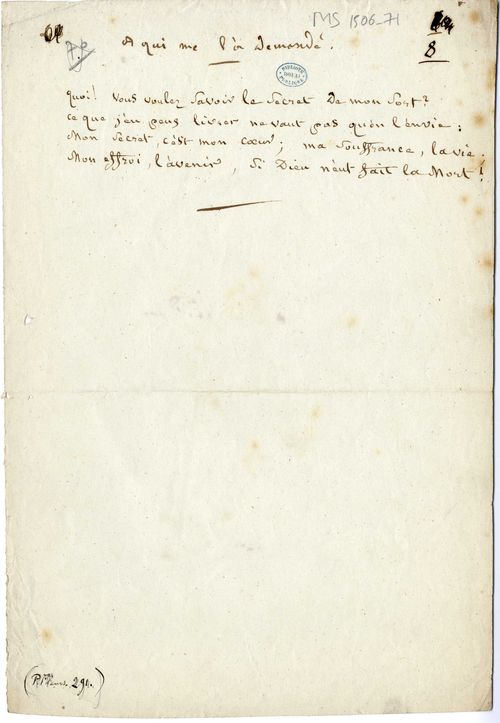 MS 1506-71
A qui me l'a demandé.
8
BIBLIOTH
DOUAI
PUBLIQUE
quoi! vous voulez savoir le secret de mon sort?
ce que j'en peus livrer ne vaut pas qu'on l'envie:
Mon secret, c'est mon cœur; ma souffrance, la vie;
Mon effroi, l'avenir, si Dieu n'eut fait la Mort!
294.